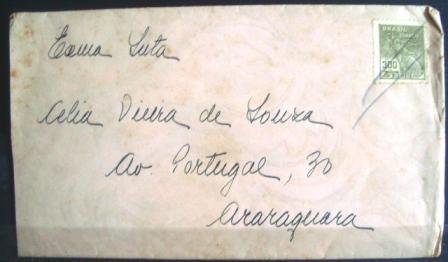 Exma Snta
Celia Vieira de Souza
Av. Portugal, 30
Araraquara
BRASIL
CORREIO
300